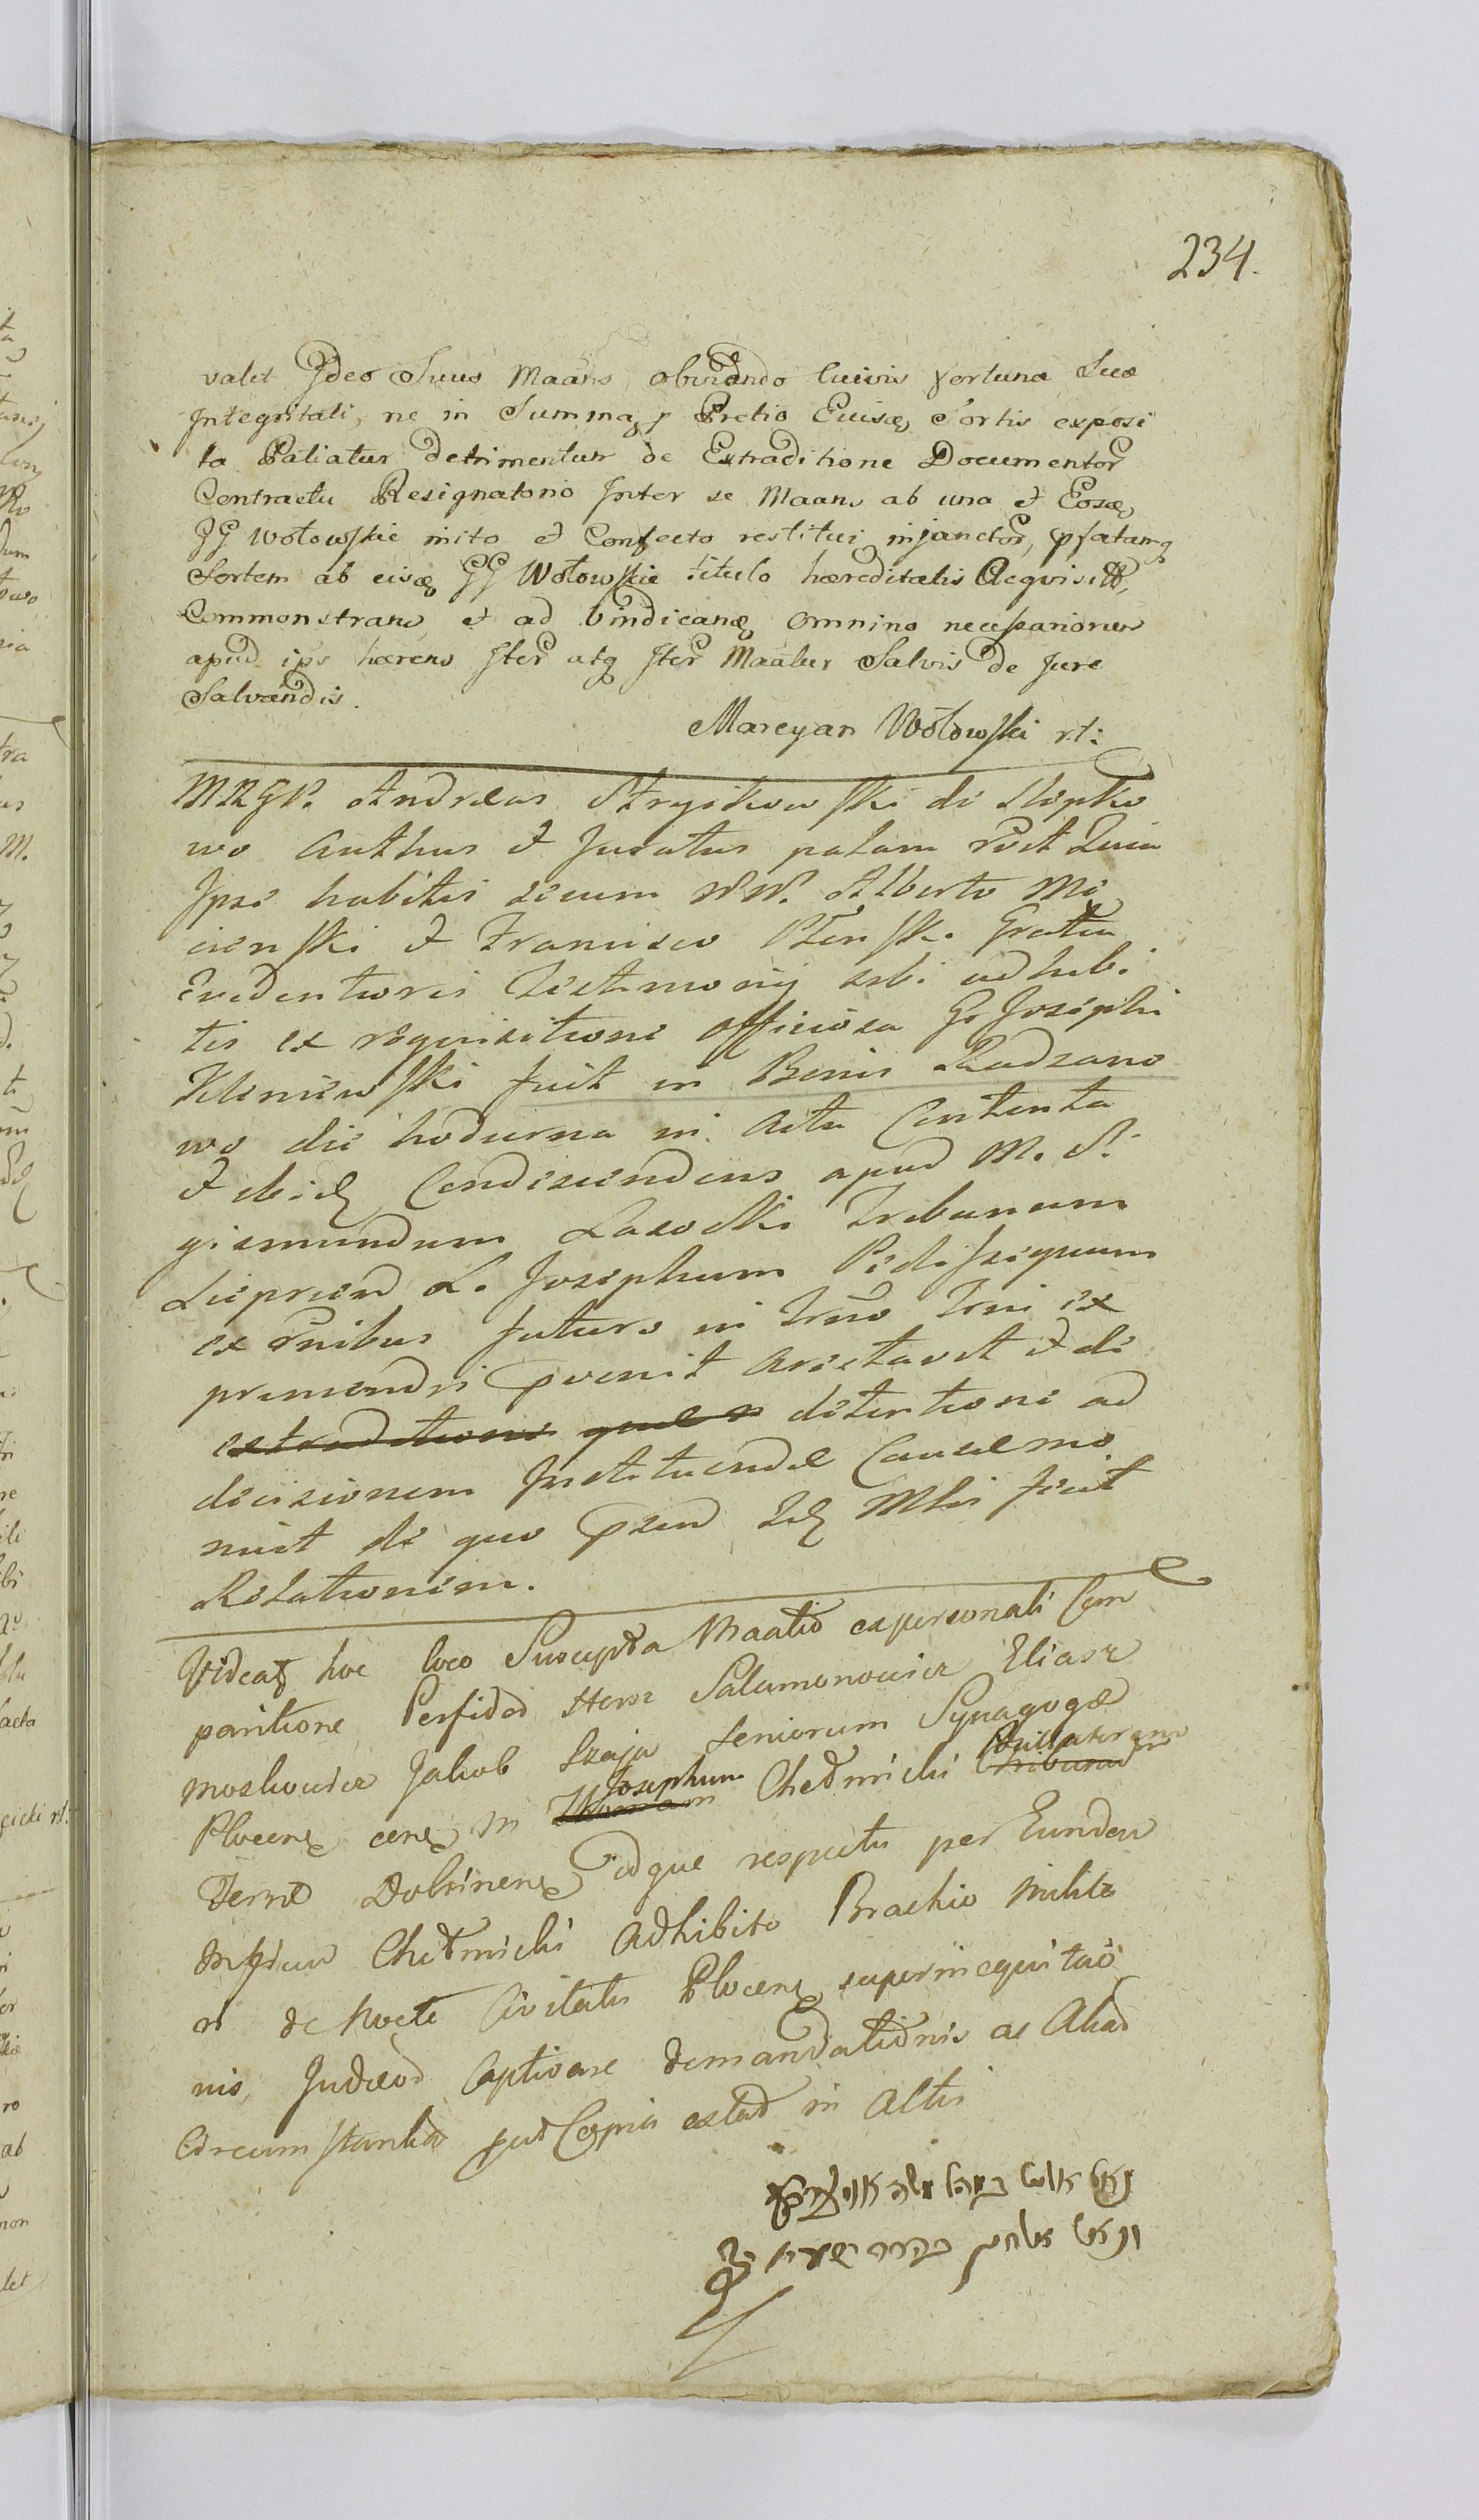 234.
valet Ideo Suus Maans obviando cuivis fortunæ Suæ
Integritati, ne in Summa, Pretio Sortis exposi
ta Patiatur detrimentum de Extraditione Documentor
Contractu Resignatorio Inter se Maans ab una et Eosq
GG Wołowskie inito et Confecto restitui injunctor, pfatamq
Sortem ab eisq GG Wołowskie titulo hæreditatis Acquis
Commonstrans et ad vindicanq omnino necessariorum
apud ips hærens Iter atq Iter Maatur Salvis de Jure
Salvandis.
Marcyan Wołowski rt:
MRGP. Andreas Stryikowski de Slepko
wo authus et Juratus palam rect Quia
Ipse habitis secum NN. Alberto Mi
cienski et Francisco gratia
Evidentioris Testimonij sibi adhibi
tis ex requisitione officiosa G. Josephi
Kleniewski fuit in Bonis Radzano
wo die hodierna in Actu Contenta
et ibidq Condescendens apud M. Si
gismundum Lasocki Tribunum
L. Josephum Pedissequum
ex rnibus futuro in Trno Trni ex
primendis pvenit arestavit et de
extraditione detentione ad
decisionem Instituendæ Causæ mo
nuit de quo psens Idq Mler fecit
Relationem.
Videatq hoc loco Suscepta Maatio ex personali Com
paritione Perfidor Hersz Salamonowicz Eliasz
Moskowicz Jakob Szaja Seniorum Synagogæ
Plocens cens M Josephum Chełmicki
Terræ Dobrinens idque respectu per Eundem
Mficum Chełmicki Adhibito Brachio milita
ri de Nocte Civitatis Plocens superinequitao
nis, Judæor Captivare demandationis ac Aliar
Circumstantiar put Copia extat in Actis